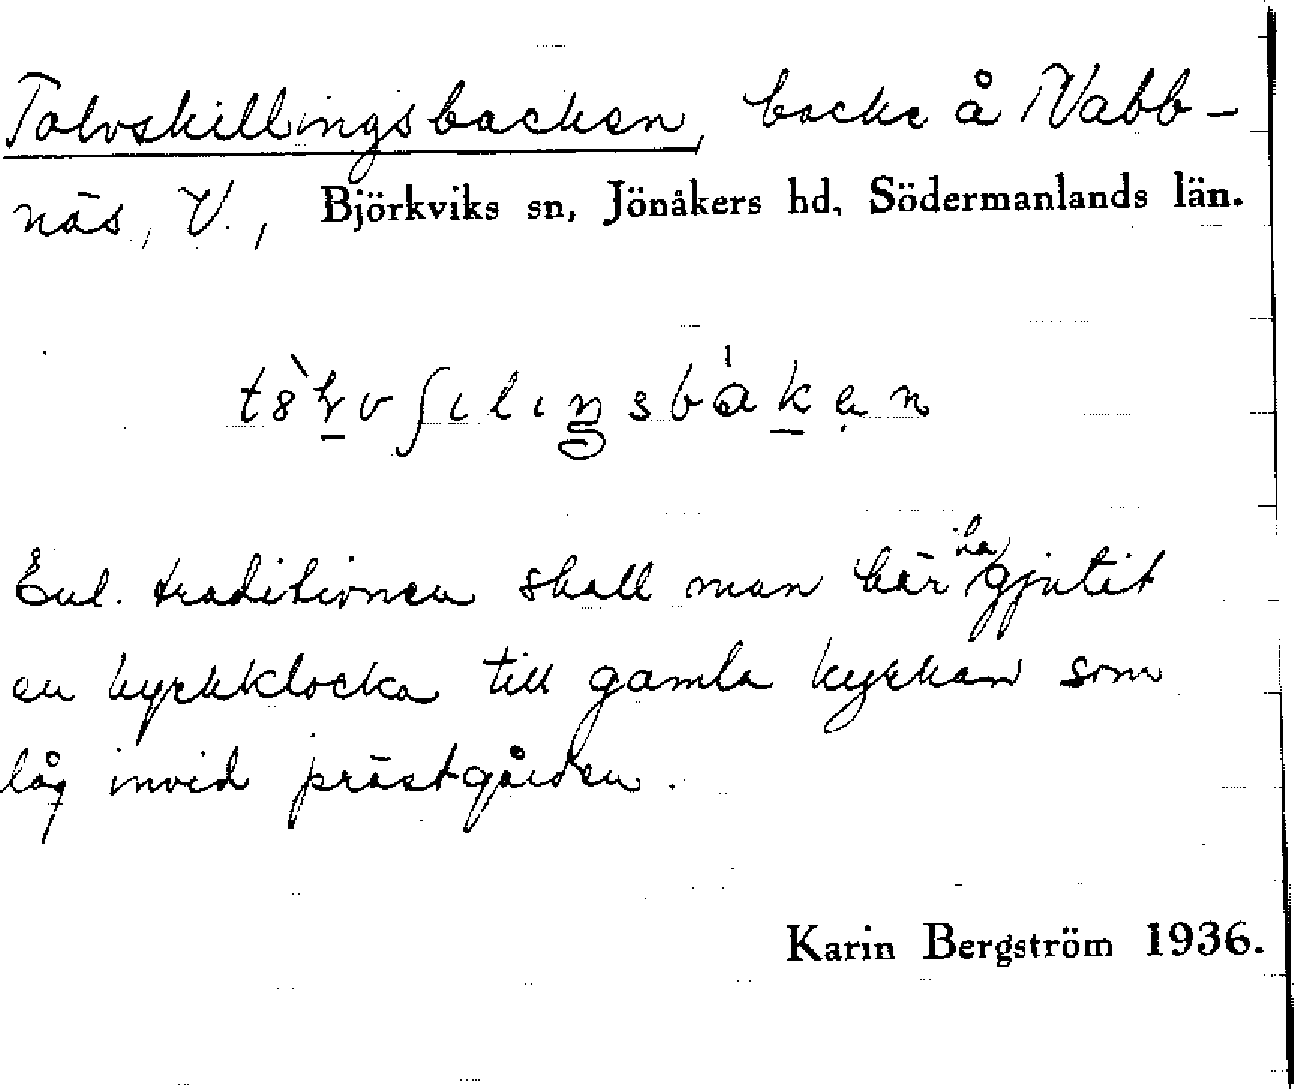 Tolvskillingsbacken, backe å Nabb-
näs, V., Björkviks sn, Jönåkers hd, Södermanlands län.
Enl. traditionen skall man här ha gjutit
en kyrkklocka till gamla kyrkan som
låg invid prästgården.
Karin Bergström 1936.